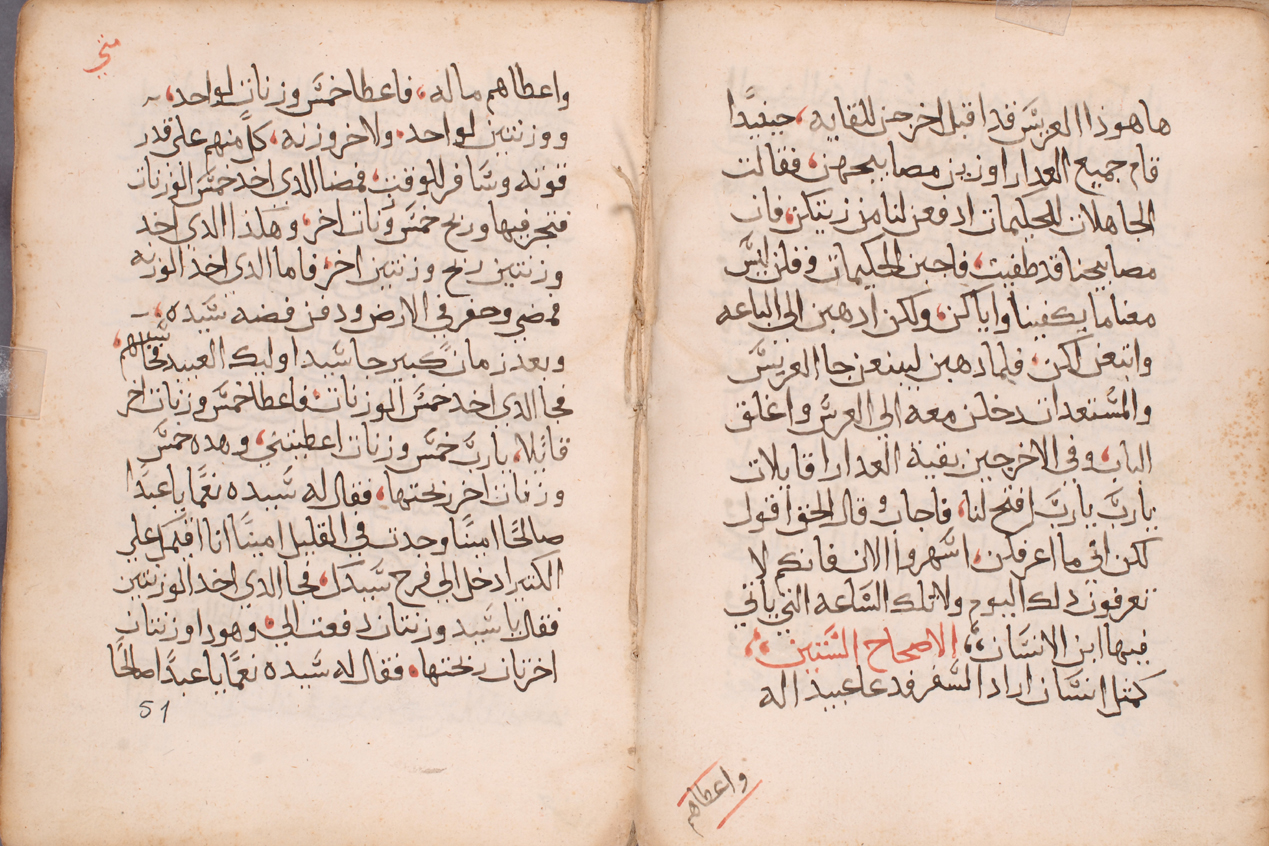 هاهوذا العريس قد اقبل اخرجن للقايه، حينيدًا
قام جميع العدارا وزين مصابيحهن، فقالت
الجاهلات للحكيمات ادفعن لنا من زيتكن، فان
مصابيحنا قد طفيت، فاجبن الحكيمات وقلن ليس
معنا ما يكفينا واياكن، ولكن ادهبن الى الباعه
وابتعن لكن، فلما دهبن ليبتعن جا العريس
والمستعدات دخلن معه الي العرس واغلق
الباب، وفي الاخر جين بقية العدارا قايلات
يا ربّ يا ربّ افتح لنا، فاجاب وقال الحق اقول
لكن اني ما اعرفكن، اسهروا الان فانكم لا
تعرفون دلك اليوم ولا تلك الساعه التي ياتي
فيها ابن الانسان، الاصحاح الستين
كمثل انسان اراد السفر فدعا عبيد اله
واعطاهم
واعطاهم ماله، فاعطا خمس وزنات لواحد،
ووزنتين لواحد، ولاخر وزنه، كل منهم على قدر
قوته وسافر للوقت، فمضا الدي اخد خمس الوزنات
فتجر فيها وربح خمس وزنات اخر، وهكذا الدي اخد
وزنتين ربح وزنتين اخر، فاما الدي اخد الوزنه
فمضي وحفر في الارض ودفن فضة سيده،
وبعد زمان كبير جا سيد اوليك العبيد فحاسبهم،
فجا الدي اخد خمس الوزنات، فاعطا خمس وزنات اخر
قائلا، يا ربّ خمس وزنات اعطيتني، وهده خمس
وزنات اخر ربحتها، فقال له سيده نعمًا يا عبدًا
صالحًا امينًا وجدت في القليل امينًا انا اقيمك على
الكتير ادخل الي فرح سيدك، فجا الدي اخد الوزنتين
فقال يا سيد وزنتان دفعت الي، وهودا وزنتان
اخرتان ربحتها، فقال له سيده نعمًا يا عبدًا صالحًا
51